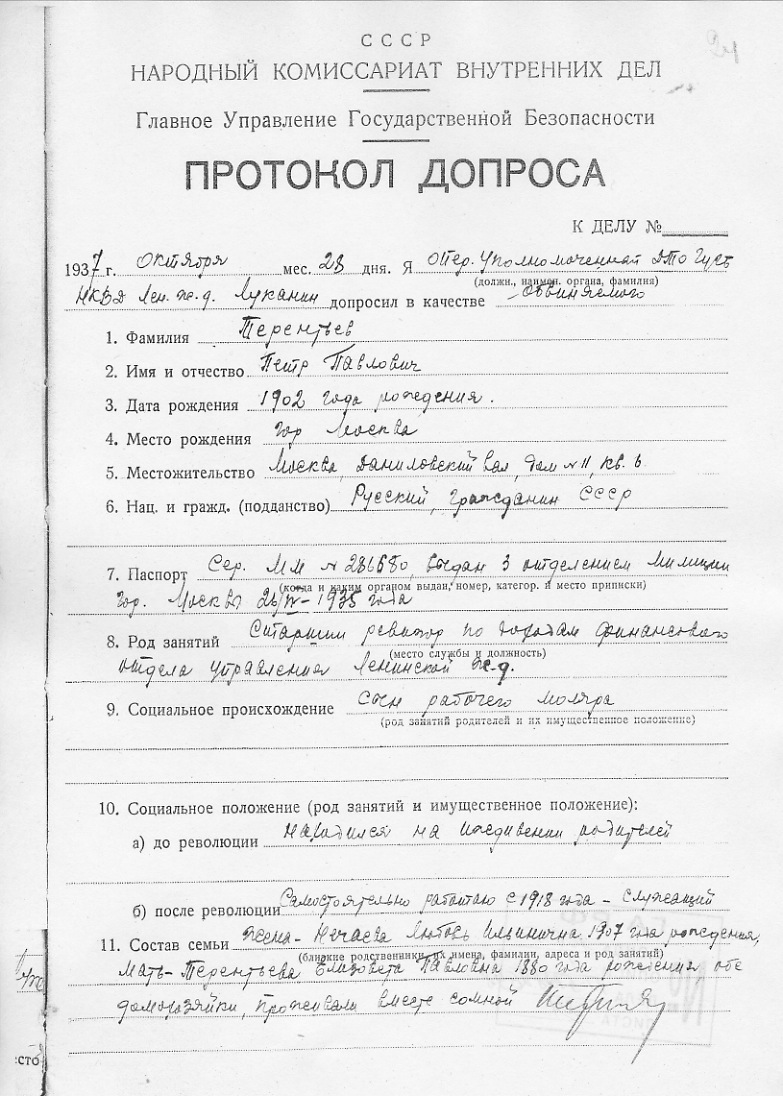 СССР
НАРОДНЫЙ КОМИССАРИАТ ВНУТРЕННИХ ДЕЛ
Главное Управление Государственной Безопасности
ПРОТОКОЛ ДОПРОСА
К ДЕЛУ №
1937 г. октября мес. 28 дня. Я Опер. уполномоченный ДТО ГУГБ
(должн., наимен. органа, фамилия)
НКВД Лен. ж.д. Луканин допросил в качестве обвиняемого
1. Фамилия Терентьев
2. Имя и отчество Петр Павлович
3. Дата рождения 1902 года рождения.
4. Место рождения гор Москва
5. Местожительство Москва, Даниловский вал, дом № 11, кв. 6
6. Нац. и гражд. (подданство) Русский, гражданин СССР
7. Паспорт Сер. ММ № 286680, выдан 3 отделением милиции
(когда и каким органом выдан, номер, категор. и место приписки)
гор. Москвы 26/IV-1935 года
8. Род занятий Старшим ревизор по доходам финансового
(место службы и должность)
отдела управления Ленинской ж.д.
9. Социальное происхождение Сын рабочего маляра
(род занятий родителей и их имущественное положение)
10. Социальное положение (род занятий и имущественное положение):
а) до революции находился на иждивении родителей
б) после революции Самостоятельно работаю с 1918 года - служащий
11. Состав семьи жена - Нечаева Любовь Ильинична 1907 года рождения,
(близкие родственники, их имена, фамилии, адреса и род занятий)
Мать - Терентьева Елизовета Павловна 1880 года рождения обе
домохозяйки, проживали вместе сомной